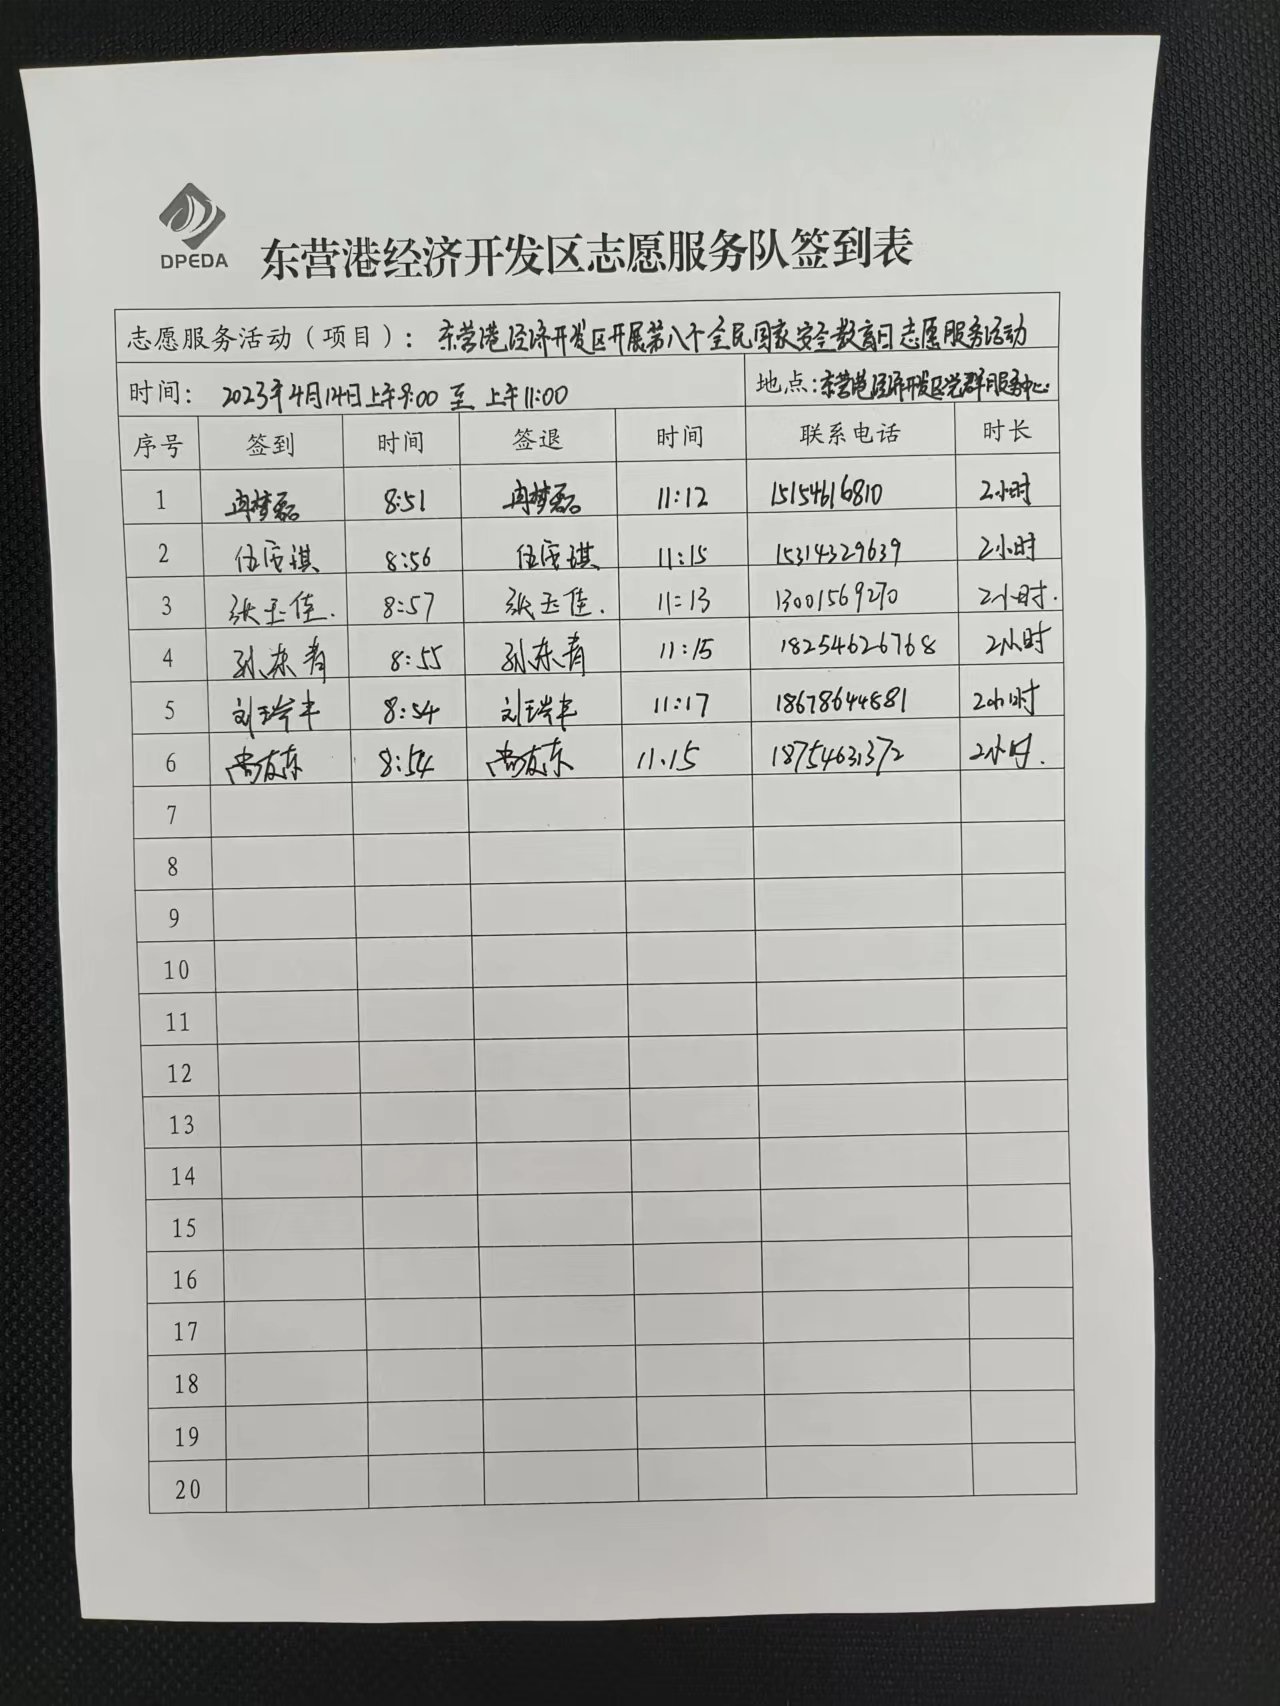 DPEDA
东营港经济开发区志愿服务队签到表
志愿服务活动（项目）：东营港经济开发区开展第八个全民国家安全教育日志愿服务活动
时间：2023年4月14日上午9:00 至 上午11:00 地点:东营港经济开发区党群服务中心
序号 签到 时间 签退 时间 联系电话 时长
1 冉梦磊 8:51 冉梦磊 11:12 15154616810 2小时
2 8:56 11:15 15314329639 2小时
3 张玉佳. 8:57 张玉佳. 11:13 13001569270 2小时.
4 孙东青 8:55 孙东青 11:15 18254626768 2小时
5 刘瑞丰 8:54 刘瑞丰 11:17 18678644881 2小时
6 尚友东 8:54 尚友东 11.15 18754631372 2小时.
7
8
9
10
11
12
13
14
15
16
17
18
19
20